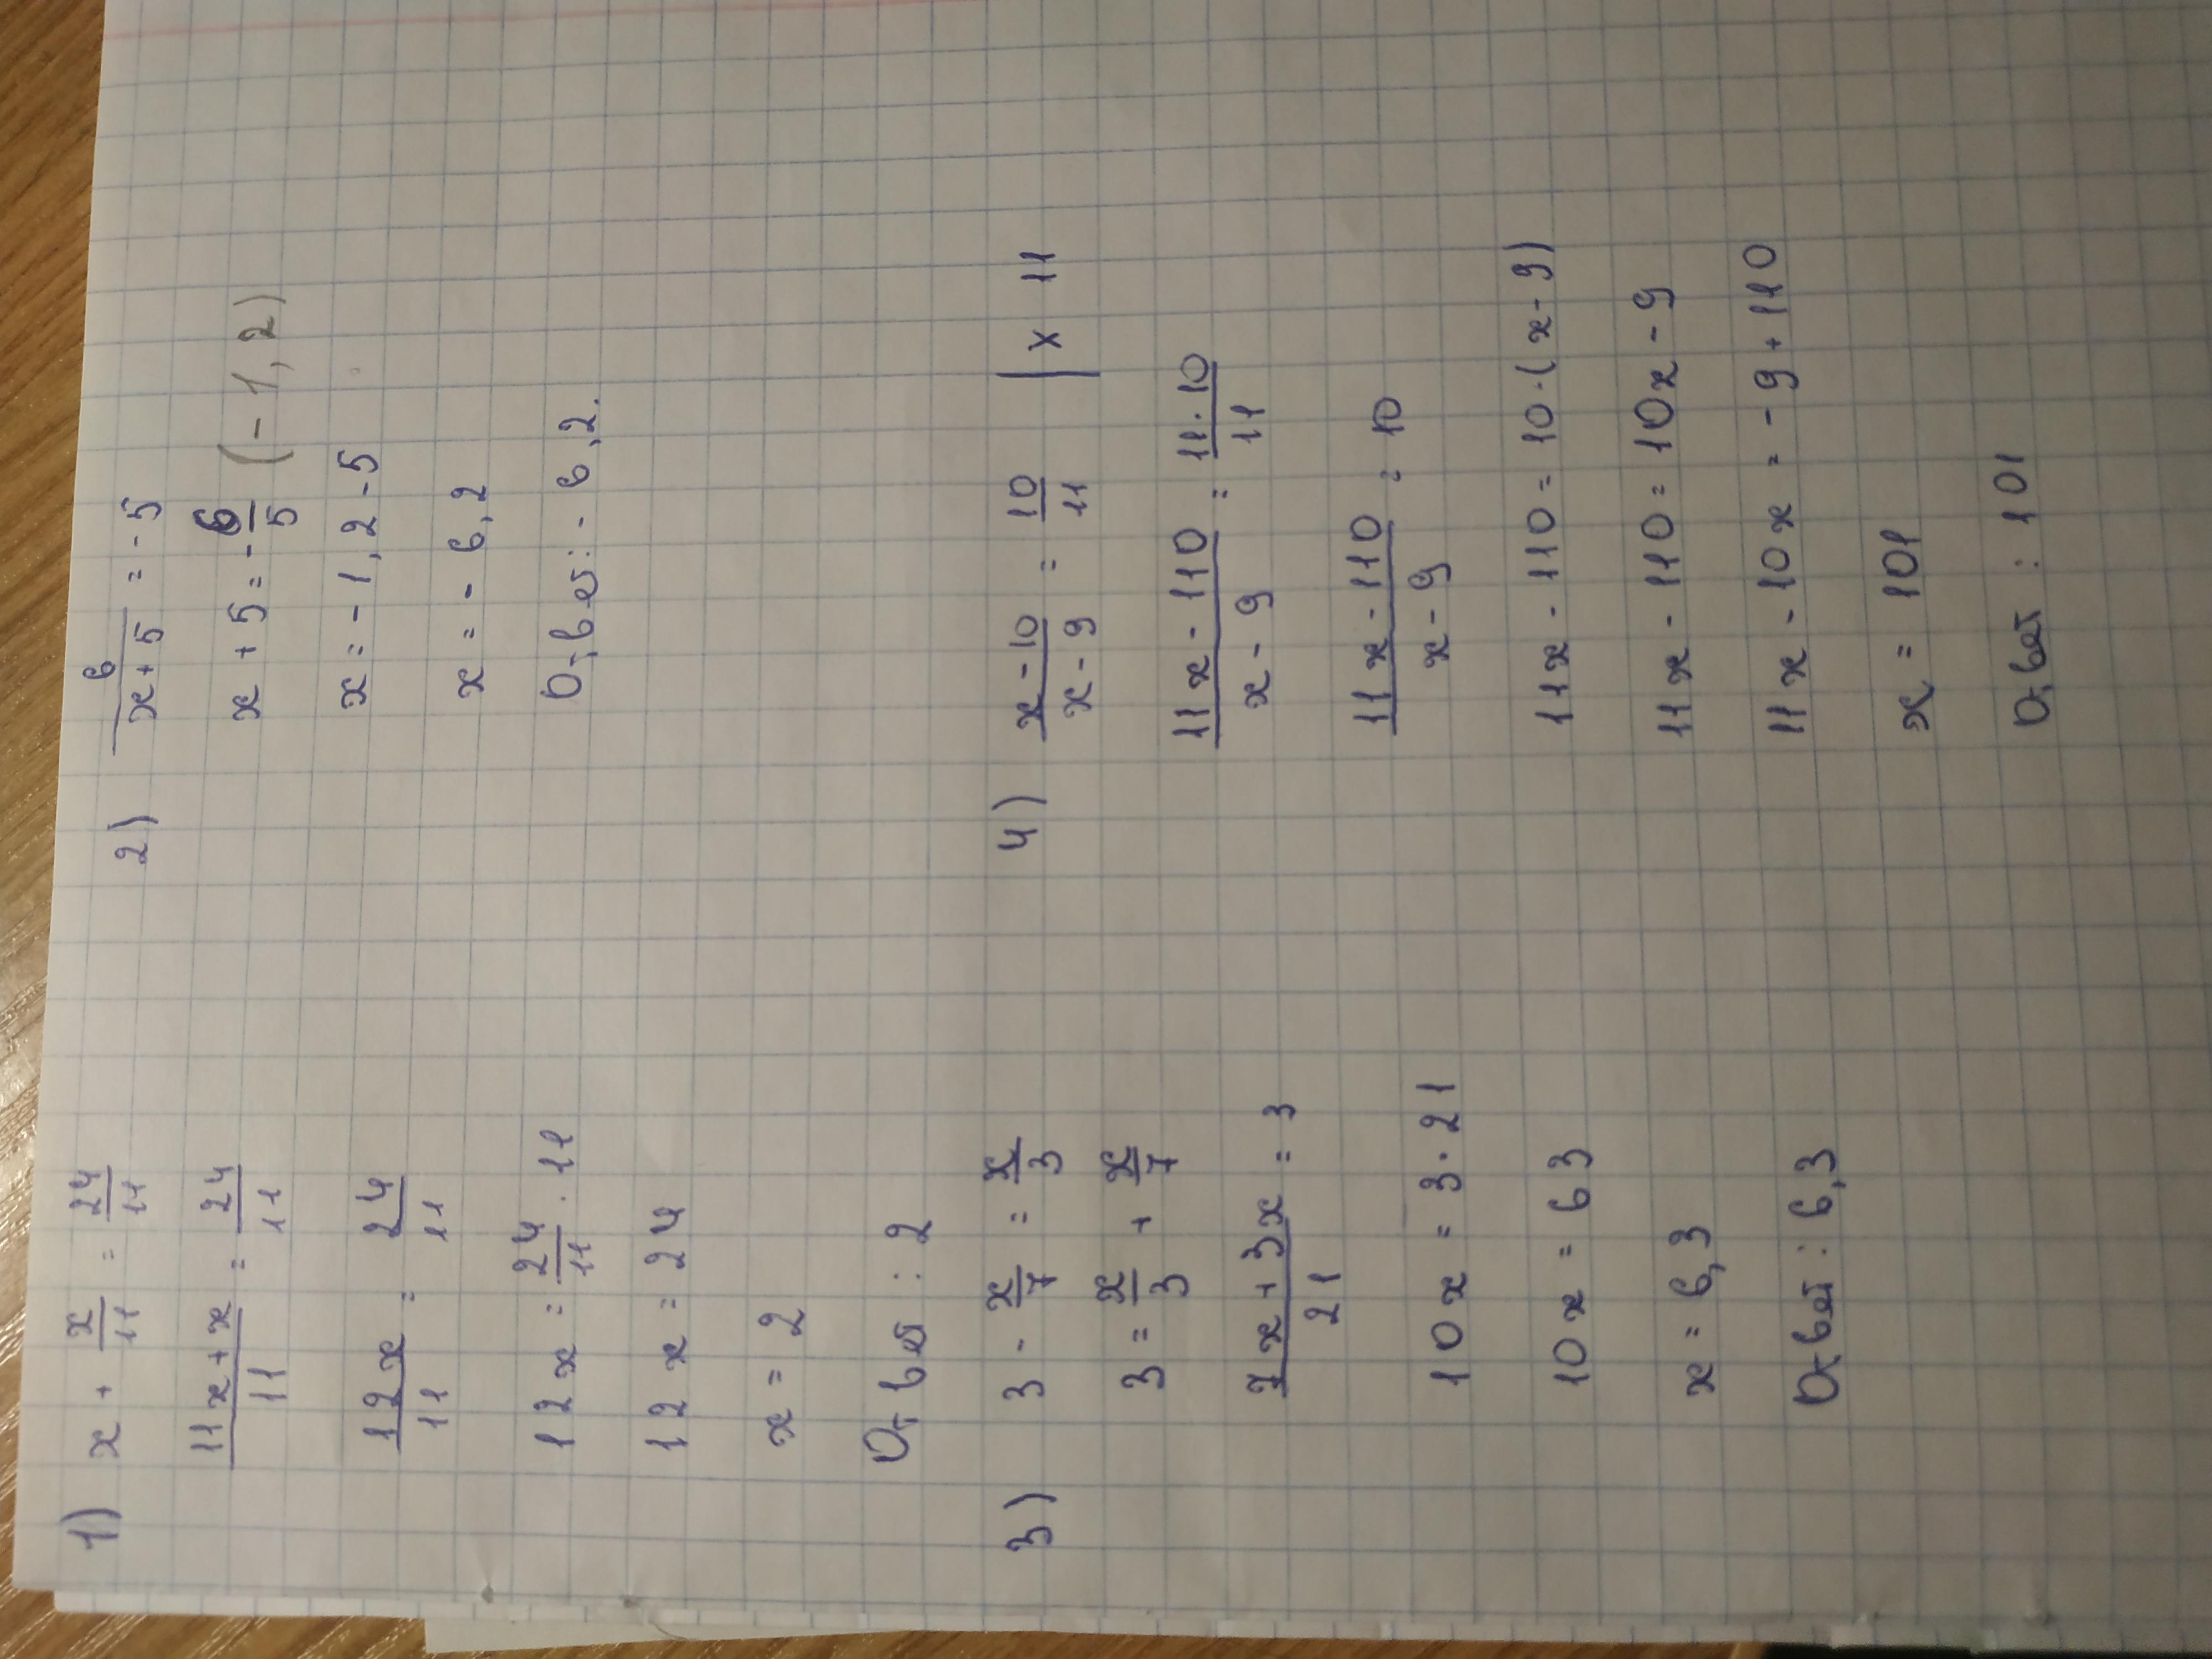 1) x + x/11 = 24/11
11x+x/11 = 24/11
12x/11 = 24/11
12x = 24/11 · 11
12x = 24
x = 2
Ответ : 2
2) 6/x+5 = -5
x + 5 = - 6/5 (-1,2)
x = -1,2 - 5
x = - 6,2
Ответ: - 6,2.
3) 3 - x/7 = x/3
3 = x/3 + x/7
7x+3x/21 = 3
10x = 3 · 21
10x = 63
x = 6,3
Ответ : 6,3
4) x-10/x-9 = 10/11 | x 11
11x - 110/x - 9 = 11·10/11
11x - 110/x - 9 = 10
11x - 110 = 10 · (x-9)
11x - 110 = 10x - 9
11x - 10x = - 9 + 110
x = 101
Ответ : 101